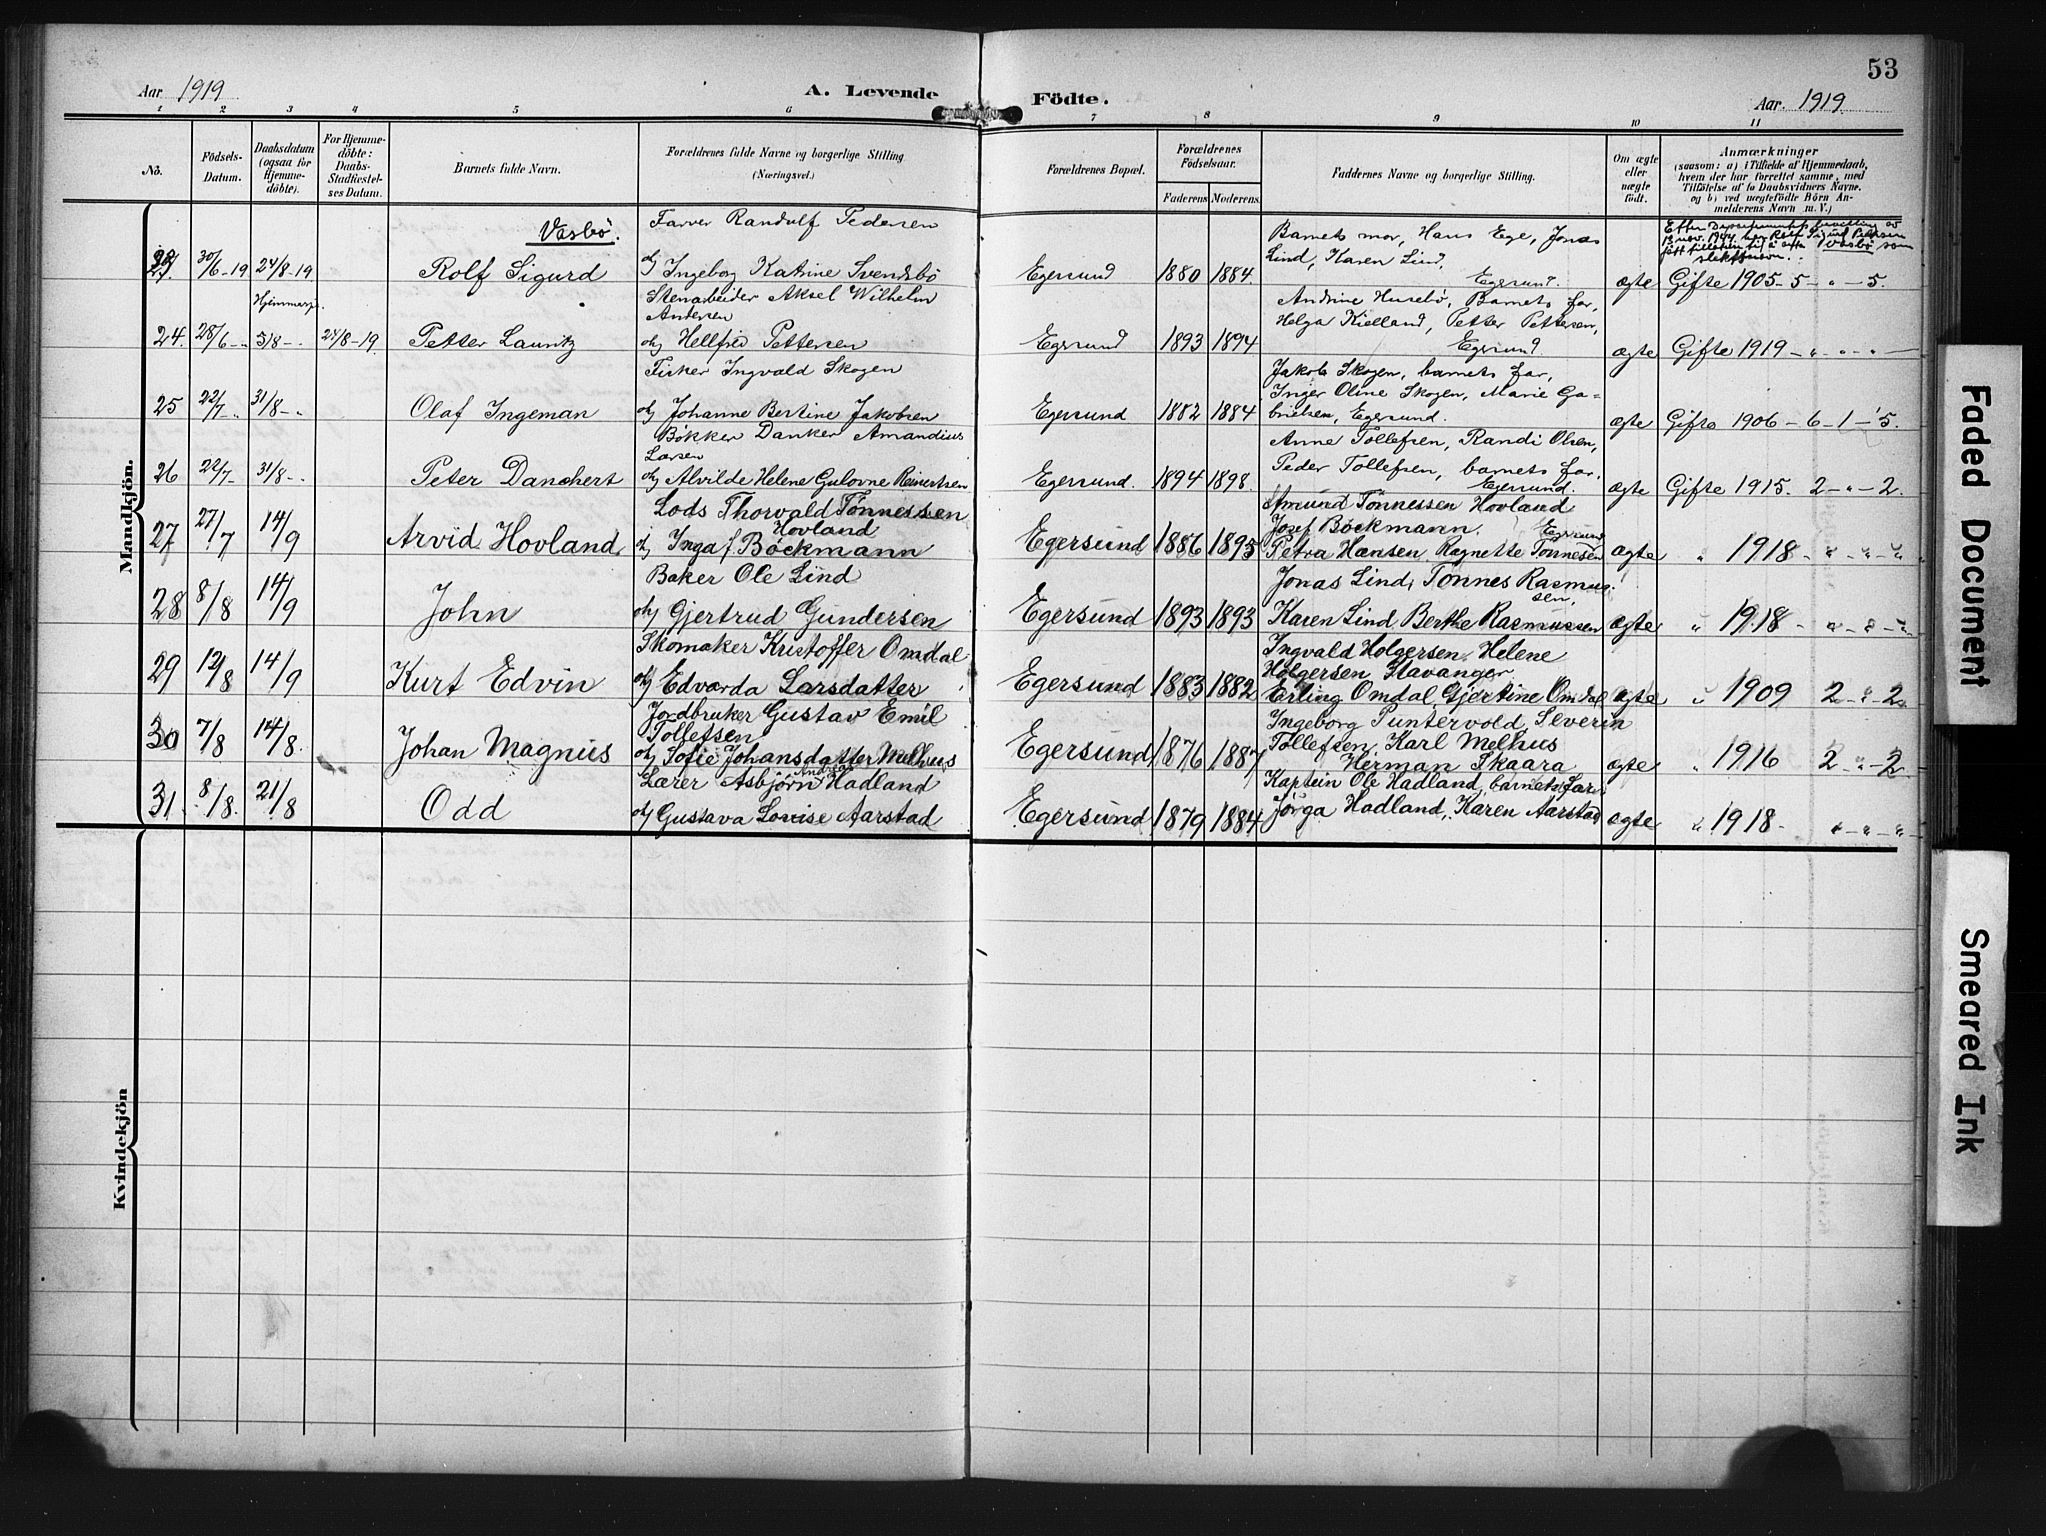 53
Aar 1919 A. Levende Födte. Aar. 1919
1 2 3 4 5 6 7 8 9 10 11
No.
Födsels-Datum.
Daabsdatum (ogsaa for Hjemme-döbte).
For Hjemme-döbte: Daabs-Stadfæstel-ses Datum.
Barnets fulde Navn.
Forældrenes fulde Navne og borgerlige Stilling. (Næringsvei.)
Forældrenes Bopæl.
Forældrenes Födselsaar.
Faderens Moderens
Faddernes Navne og borgerlige Stilling.
Om ægte eller uægte födt.
Anmærkninger
(saasom: a) i Tilfælde af Hjemmedaab,
hvem der har forrettet samme, med
Tilföielse af to Daabsvidners Navne.
og b) ved uægtefödte Börn An-
melderens Navn m. V.)
Mandkjön.
Vasbø. Farver Randulf Pedersen Barnets mor, Hans Ege, Jonas
13. nov. 1944 har Rolf Sigurd Pedersen
Lind, Karen Lind,
slektsnavn.
23. 30/6-19 24/8-19 Rolf Sigurd og Ingeborg Katrine Svendsbø Egersund 1880 1884 Egersund. ægte Gifte 1905-5-"-5.
Stenarbeider Aksel Wilhelm Andersen
Andrine Husebø, Barnets far,
Helga Kielland, Petter Pettersen,
24. 28/6-" 3/8-" 24/8-19. Petter Lauritz og Hellfrid Pettersen Egersund 1893 1894 Egersund ægte Gifte 1919-"-"-"-
Fisker Ingvald Skogen Jakob Skogen, barnets far,
Inger Oline Skogen, Marie Ga-
25 22/7-" 31/8-" Olaf Ingeman og Johanne Bertine Jakobsen Egersund 1882 1884 brielsen, Egersund. ægte Gifte 1906-6-1-5.
Bøkker Danker Amandius Larsen
Anne Tollefsen, Randi Olsen,
Peder Tollefsen, barnets far,
26 22/7- 31/8-" Peter Danchert og Alvilde Helene Gulovne Reinertsen Egersund. 1894 1898 Egersund. ægte Gifte 1915. 2-"-2.
Lods Thorvald Tønnessen Hovland
Amund Tønnessen Hovland
Josef Bøckmann. Egersund
27 27/7 14/9 Arvid Hovland og Inga f. Bøckmann Egersund 1886 1895 Petra Hansen, Ragnette Tønnesen ægte " 1918-"-"-"
Baker Ole Lind Jonas Lind, Tønnes Rasmus-
sen,
28 8/8 14/9 John og Gjertrud Gundersen Egersund 1893 1893 Karen Lind Berthe Rasmussen ægte " 1918-"-"-"
Skomaker Kristoffer Omdal Ingvald Holgersen, Helene
Holgersen Stavanger
29 12/8 14/9 Kurt Edvin og Edvarda Larsdatter Egersund 1883 1882 Erling Omdal, Gjertine Omdal ægte " 1909 2-"-2
Jordbruker Gustav Emil Tollefsen
Ingeborg Puntervold, Severin
Tollefsen, Karl Melhus
30 7/8 14/8. Johan Magnus og Sofie Johansdatter Melhus Egersund 1876 1887 Herman Skaara ægte " 1916 2-"-2
Lærer Asbjørn Andreas Hadland Kaptein Ole Hadland, barnets far,
31. 8/8. 21/8 Odd og Gustava Lovise Aarstad Egersund 1879 1884 Jørga Hadland, Karen Aarstad ægte " 1918-"-"-"
Kvindekjön
Faded Document
Smeared Ink